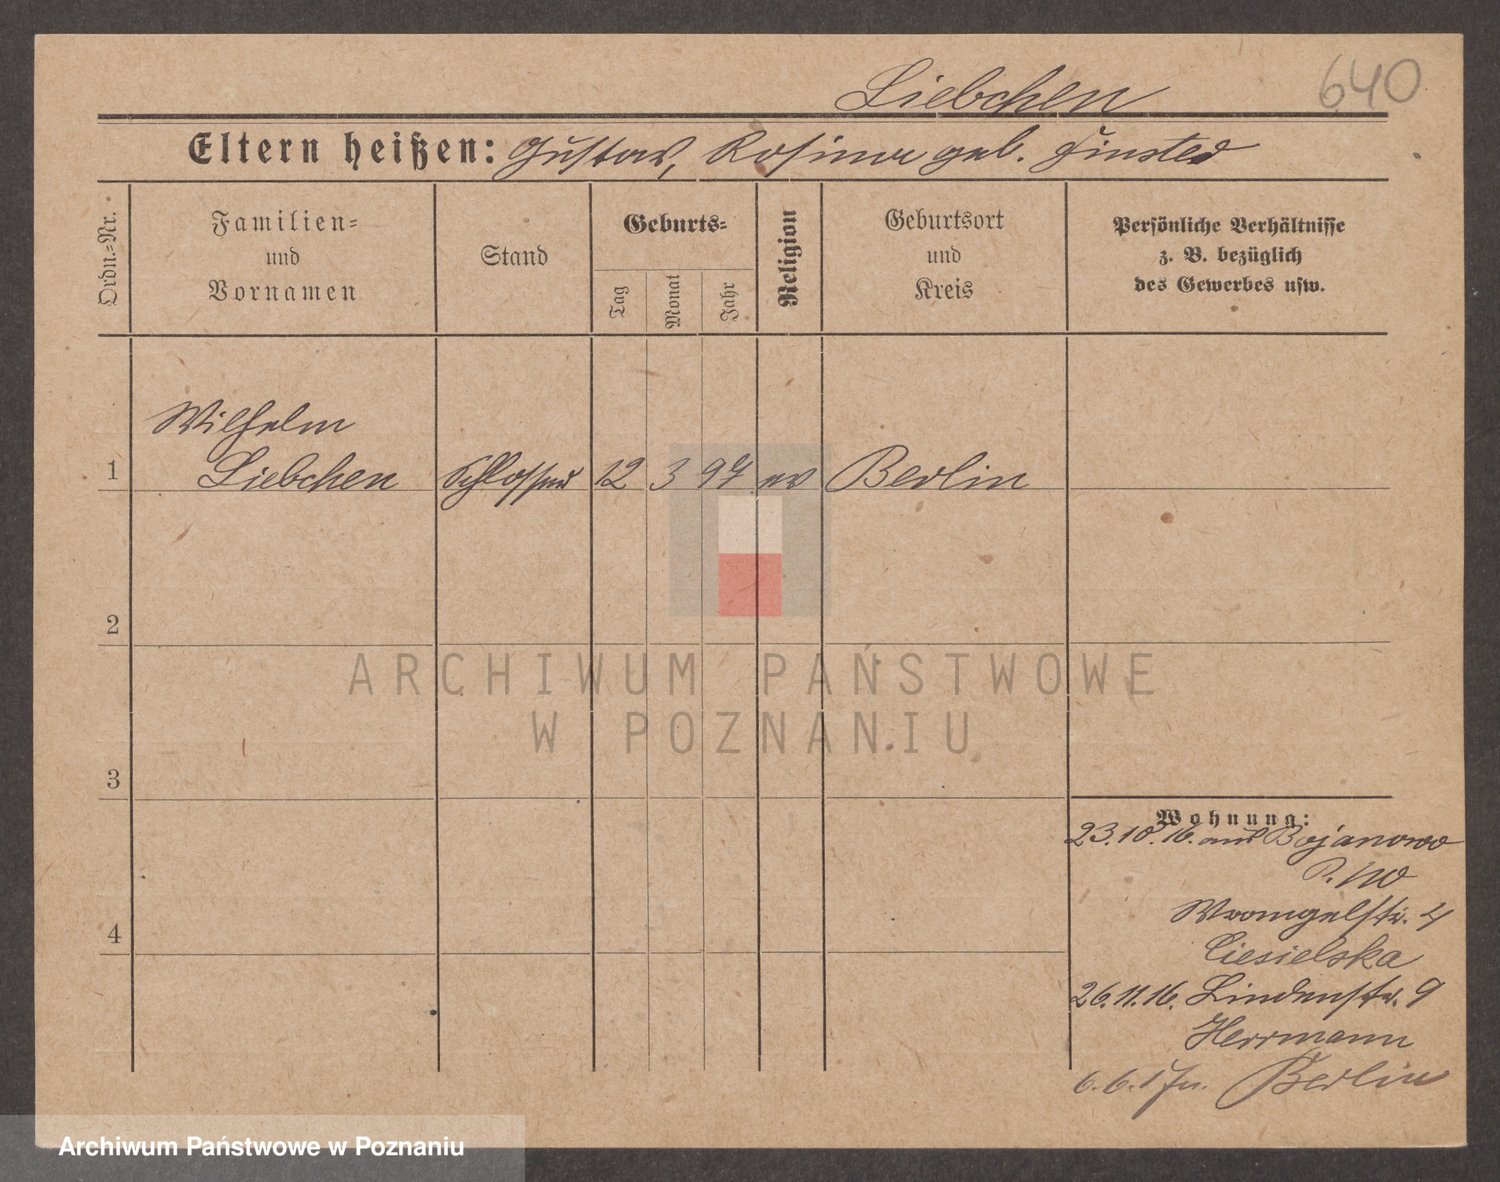 640
Liebchen
Eltern heißen: Gustav, Rosina geb.
Ordn.-Nr.
Familien-
und
Vornamen
Stand
Geburts-
Tag
Monat
Jahr
Religion
Geburtsort
und
Kreis
Persönliche Verhältnisse
z. B. bezüglich
des Gewerbes usw.
Wilhelm
1 Liebchen Schlosser 12 3 97 ev Berlin
2
ARCHIWUM PAŃSTWOWE
W POZNANIU
3
Wohnung:
23.10.16. aus Bojanowo
Wrangelstr. 4
4
Ciesielska
26.11.16. Lindenstr. 9
Herrmann
6.6.17 n. Berlin
Archiwum Państwowe w Poznaniu